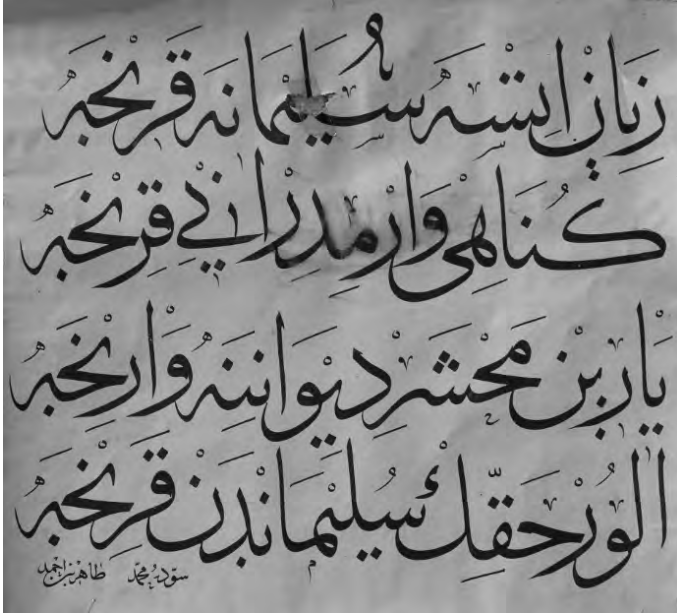 زيان ايتسه سليمانه قرنجه
كناهى وارمدر انى قرنجه
يارين محشر ديواننه وارنجه
الور حقك سليماندن قرنجه
سوده محمد طاهر بن احمد